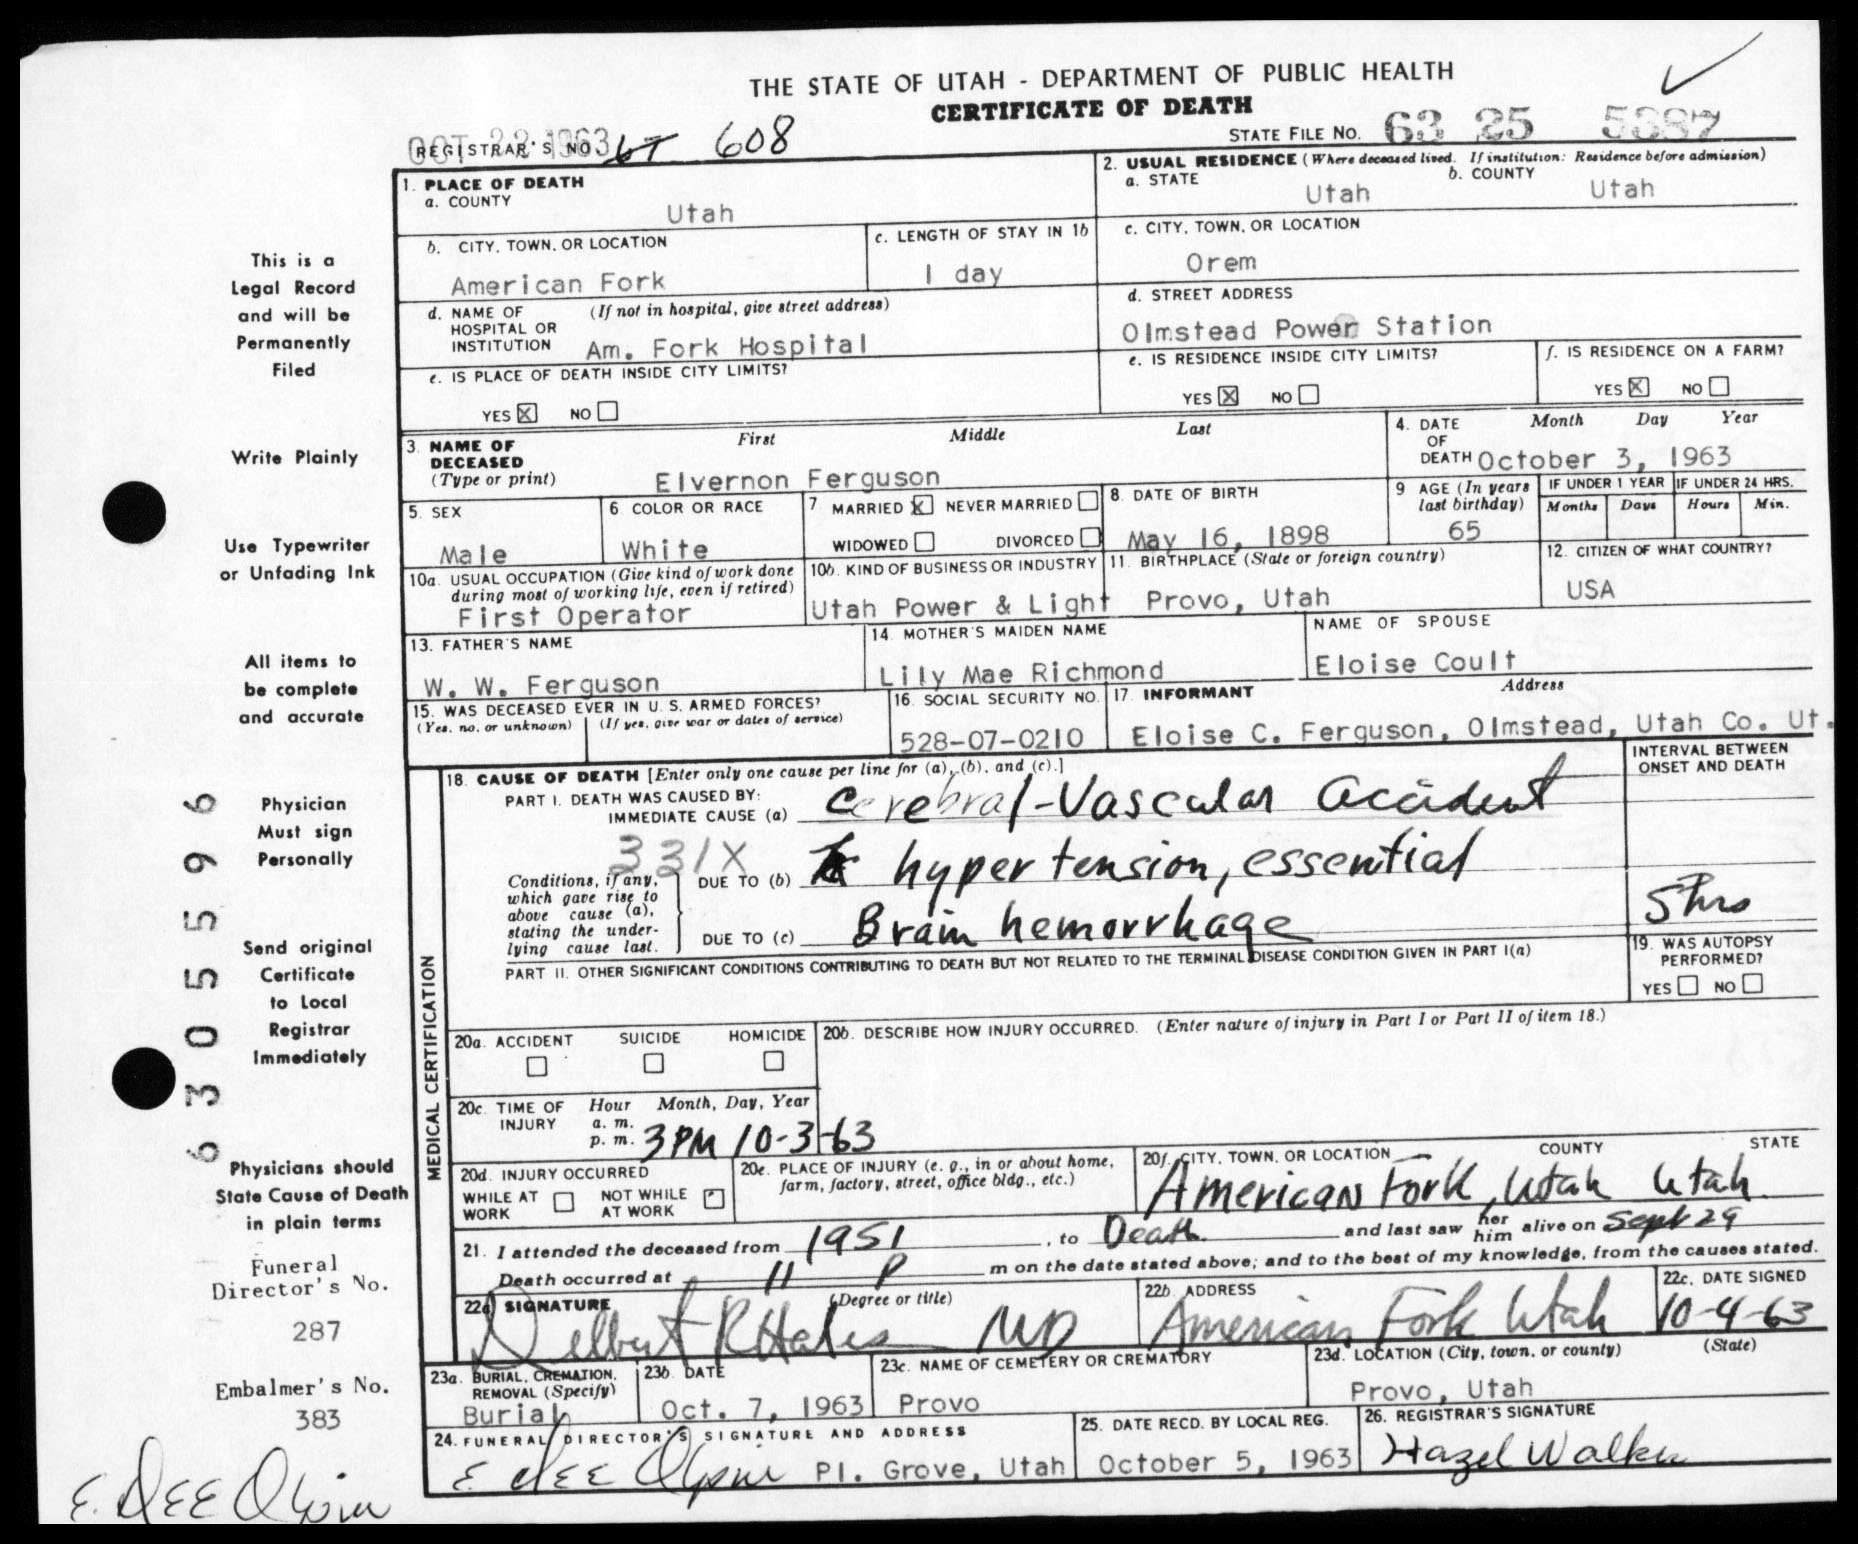 THE STATE OF UTAH - DEPARTMENT OF PUBLIC HEALTH
CERTIFICATE OF DEATH
OCT 22 1963
REGISTRAR'S NO. 608
STATE FILE NO. 63 25 5387
1. PLACE OF DEATH
a. COUNTY
Utah
2. USUAL RESIDENCE (Where deceased lived. If institution: Residence before admission)
a. STATE Utah b. COUNTY Utah
b. CITY, TOWN, OR LOCATION
American Fork
c. LENGTH OF STAY IN 1b
1 day
c. CITY, TOWN, OR LOCATION
Orem
d. NAME OF HOSPITAL OR INSTITUTION (If not in hospital, give street address)
Am. Fork Hospital
d. STREET ADDRESS
Olmstead Power Station
e. IS PLACE OF DEATH INSIDE CITY LIMITS?
YES X NO
e. IS RESIDENCE INSIDE CITY LIMITS?
YES X NO
f. IS RESIDENCE ON A FARM?
YES X NO
3. NAME OF DECEASED (Type or print)
First Middle Last
Elvernon Ferguson
4. DATE OF DEATH Month Day Year
October 3, 1963
5. SEX
Male
6 COLOR OR RACE
White
7 MARRIED X NEVER MARRIED
WIDOWED DIVORCED
8. DATE OF BIRTH
May 16, 1898
9 AGE (In years last birthday)
65
IF UNDER 1 YEAR
Months Days
IF UNDER 24 HRS.
Hours Min.
10a. USUAL OCCUPATION (Give kind of work done during most of working life, even if retired)
First Operator
10b. KIND OF BUSINESS OR INDUSTRY
Utah Power & Light
11. BIRTHPLACE (State or foreign country)
Provo, Utah
12. CITIZEN OF WHAT COUNTRY?
USA
13. FATHER'S NAME
W. W. Ferguson
14. MOTHER'S MAIDEN NAME
Lily Mae Richmond
NAME OF SPOUSE
Eloise Coult
15. WAS DECEASED EVER IN U. S. ARMED FORCES?
(Yes, no, or unknown) (If yes, give war or dates of service)
16. SOCIAL SECURITY NO.
528-07-0210
17. INFORMANT Address
Eloise C. Ferguson, Olmstead, Utah Co. Ut.
MEDICAL CERTIFICATION
18. CAUSE OF DEATH [Enter only one cause per line for (a), (b), and (c).]
INTERVAL BETWEEN ONSET AND DEATH
PART I. DEATH WAS CAUSED BY:
IMMEDIATE CAUSE (a) Cerebral-Vascular accident
331X
Conditions, if any, which gave rise to above cause (a), stating the underlying cause last.
DUE TO (b) hypertension, essential
DUE TO (c) Brain hemorrhage
5 hrs
PART II. OTHER SIGNIFICANT CONDITIONS CONTRIBUTING TO DEATH BUT NOT RELATED TO THE TERMINAL DISEASE CONDITION GIVEN IN PART I(a)
19. WAS AUTOPSY PERFORMED?
YES NO
20a. ACCIDENT SUICIDE HOMICIDE
20b. DESCRIBE HOW INJURY OCCURRED. (Enter nature of injury in Part I or Part II of item 18.)
20c. TIME OF INJURY Hour Month, Day, Year
a. m.
p. m. 3PM 10-3-63
20d. INJURY OCCURRED
WHILE AT WORK NOT WHILE AT WORK
20e. PLACE OF INJURY (e. g., in or about home, farm, factory, street, office bldg., etc.)
20f. CITY, TOWN, OR LOCATION COUNTY STATE
American Fork, Utah Utah
21. I attended the deceased from 1951, to Death and last saw her him alive on Sept 29
Death occurred at 11 P m on the date stated above; and to the best of my knowledge, from the causes stated.
22a. SIGNATURE (Degree or title)
Delbert R Hales MD
22b. ADDRESS
American Fork Utah
22c. DATE SIGNED
10-4-63
23a. BURIAL, CREMATION, REMOVAL (Specify)
Burial
23b. DATE
Oct. 7, 1963
23c. NAME OF CEMETERY OR CREMATORY
Provo
23d. LOCATION (City, town, or county) (State)
Provo, Utah
24. FUNERAL DIRECTOR'S SIGNATURE AND ADDRESS
E. DEE Olpin Pl. Grove, Utah
25. DATE RECD. BY LOCAL REG.
October 5, 1963
26. REGISTRAR'S SIGNATURE
Hazel Walker
This is a
Legal Record
and will be
Permanently
Filed
Write Plainly
Use Typewriter
or Unfading Ink
All items to
be complete
and accurate
Physician
Must sign
Personally
Send original
Certificate
to Local
Registrar
Immediately
Physicians should
State Cause of Death
in plain terms
Funeral
Director's No.
287
Embalmer's No.
383
E. DEE Olpin
63055596